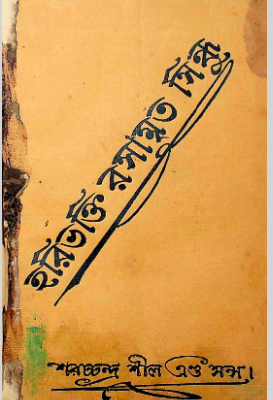 হরিভক্তি রসামৃত সিন্ধু
শরচ্চন্দ্র শীল এণ্ড সন্স।